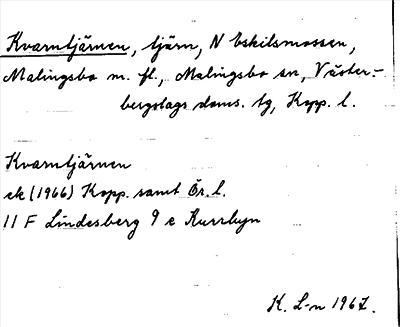 Kvarntjärnen, tjärn, N Eskilsmossen,
Malingsbo m. fl., Malingsbo sn, Väster-
bergslags doms. tg, Kopp. l.
Kvarntjärnen
ek (1966) Kopp. samt Ör. l.
11 F Lindesberg 9 e Kurrbyn
K. L-n 1967.